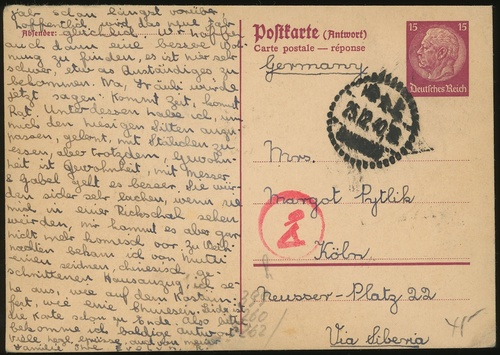 Jahr schon längst vorüber.
Hoffentlich wird das neue Jahr
Absender: glücklich. Wir hoffen
auch dann eine bessere Woh
nung zu finden, es ist hier sehr
schwer, etwas Anständiges zu
bekommen. Na, Fräulein würde
jetzt sagen: Kommt Zeit, kommt
Rat. Unterdessen habe ich
mich den hiesigen Sitten ange
passen, gelernt, mit Stäbchen zu
essen, aber trotzdem, Gewohn
heit ist Gewohnheit, mit Messer
& Gabel geht es besser. Sie wür
den sicher sehr lachen, wenn sie
mich in einer Rickschah sehen
würden, mir kommt es aber gar
nicht mehr komisch vor. Zu Weih
nachten bekam ich von Mutti
einen seidnen, chinesisch ge
schnittenen Hausanzug, ich se
he aus, wie auf dem Kostüm
fest, wie eine Chinesin. Leider ist
die Karte schon zu Ende. Also bitte
bekomme ich baldige Antwort.
Viele herzl. Grüsse, auch von meiner
Familie Ihre
Postkarte (Antwort)
Carte postale — réponse
Germany
15 15
Deutsches Reich
25.12.40
Mrs.
Margot Pytlik
Köln
Neusser-Platz 22
Via Siberia